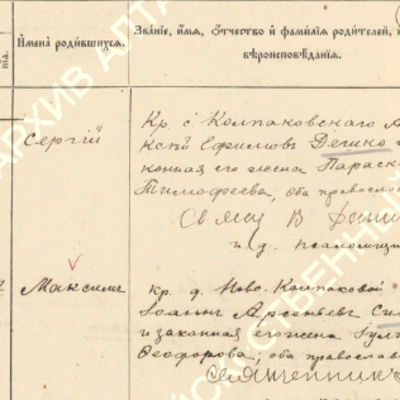 Имена родившихся.
Званіе, имя, отчество и фамилія родителей, и
вѣроисповѣданія.
нія.
Сергій
Кр. с. Колпаковскаго А
Ефимовъ Дешко
конная его жена Параск
Тимофеева, оба православ
и. д. псаломщи
Максимъ
кр. д. Ново-Колпаковой
Іоаннъ Арсеньевъ Си
и законная его жена Гул
Феодорова; оба православ
Священникъ
АРХИВ АЛТА
СТВЕННЫЙ